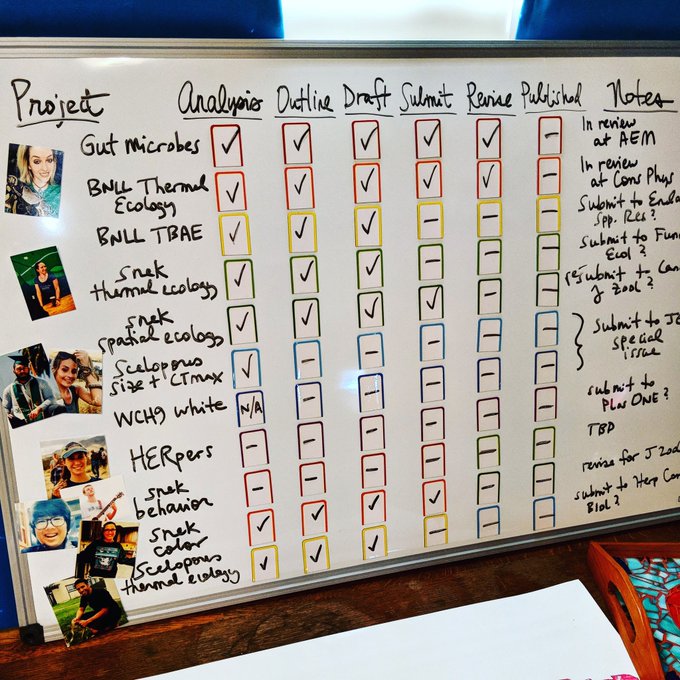 Project Analysis Outline Draft Submit Revise Published Notes
Gut Microbes
In review
at AEM
BNLL Thermal
Ecology
In review
at Cons Phys
BNLL TBAE
Submit to
Spp. Res?
snek
thermal ecology
submit to Fun
Ecol?
snek
spatial ecology
submit to Can
J Zool?
Sceloporus
size + CTmax
Submit to
special
issue
WCH9 white
N/A
submit to
Plos ONE?
HERpers
TBD
snek
behavior
snek
color
revise for J
Sceloporus
thermal ecology
submit to Herp Con
Biol?